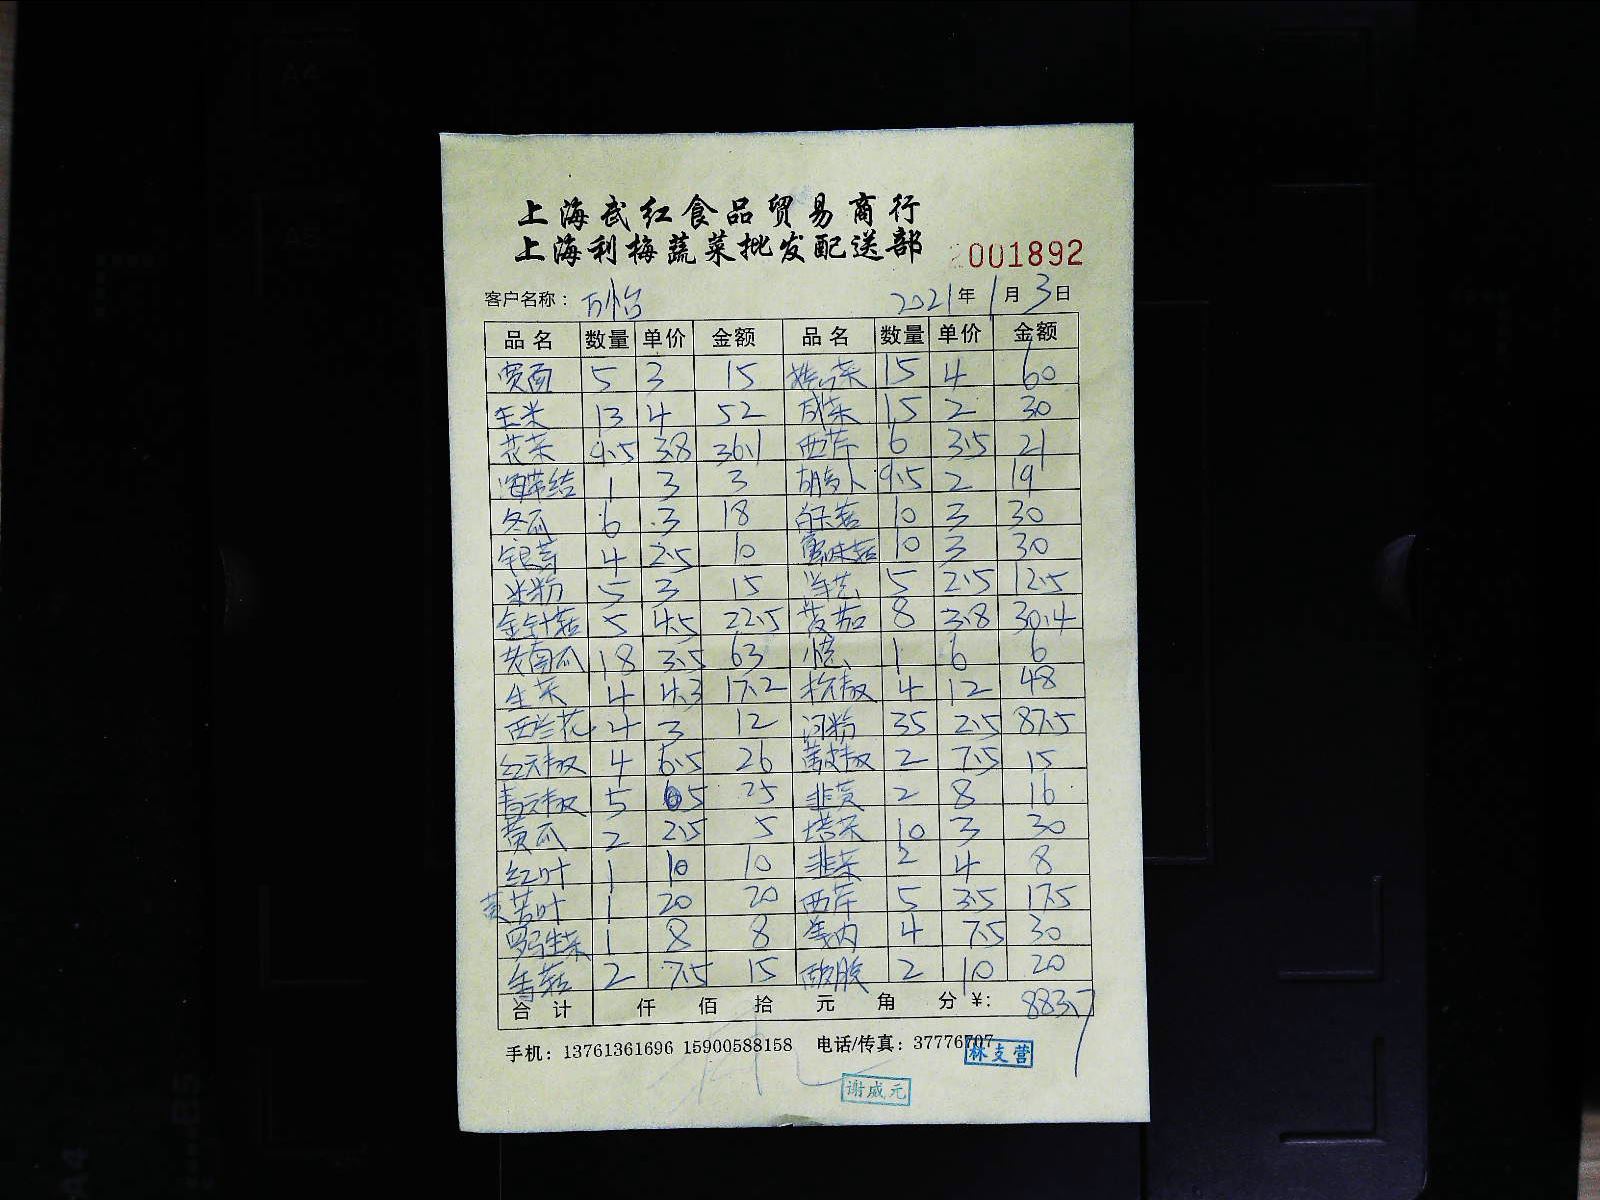 上海武红食品贸易商行
上海利梅蔬菜批发配送部 001892
客户名称: 万怡 2021年1月3日
品名 数量 单价 金额 品名 数量 单价 金额
5 3 15 15 4 60
玉米 13 4 52 15 2 30
花菜 9.5 3.8 36.1 西芹 6 3.5 21
海带结 1 3 3 胡萝卜 9.5 2 19
冬瓜 6 3 18 白玉菇 10 3 30
银芽 4 2.5 10 蟹味菇 10 3 30
米粉 5 3 15 洋葱 5 2.5 12.5
金针菇 5 4.5 22.5 8 3.8 30.4
老南瓜 18 3.5 63 小葱 1 6 6
生菜 4 4.3 17.2 杭椒 4 12 48
西兰花 4 3 12 河粉 35 2.5 87.5
红元椒 4 6.5 26 黄皮椒 2 7.5 15
青元椒 5 5 25 韭黄 2 8 16
黄瓜 2 2.5 5 塔菜 10 3 30
红叶 1 10 10 韭菜 2 4 8
黄苦叶 1 20 20 西芹 5 3.5 17.5
罗马生菜 1 8 8 4 7.5 30
香菇 2 7.5 15 2 10 20
合计 仟 佰 拾 元 角 分 ¥: 883.7
手机: 13761361696 15900588158 电话/传真: 37776707
林支营
谢成元